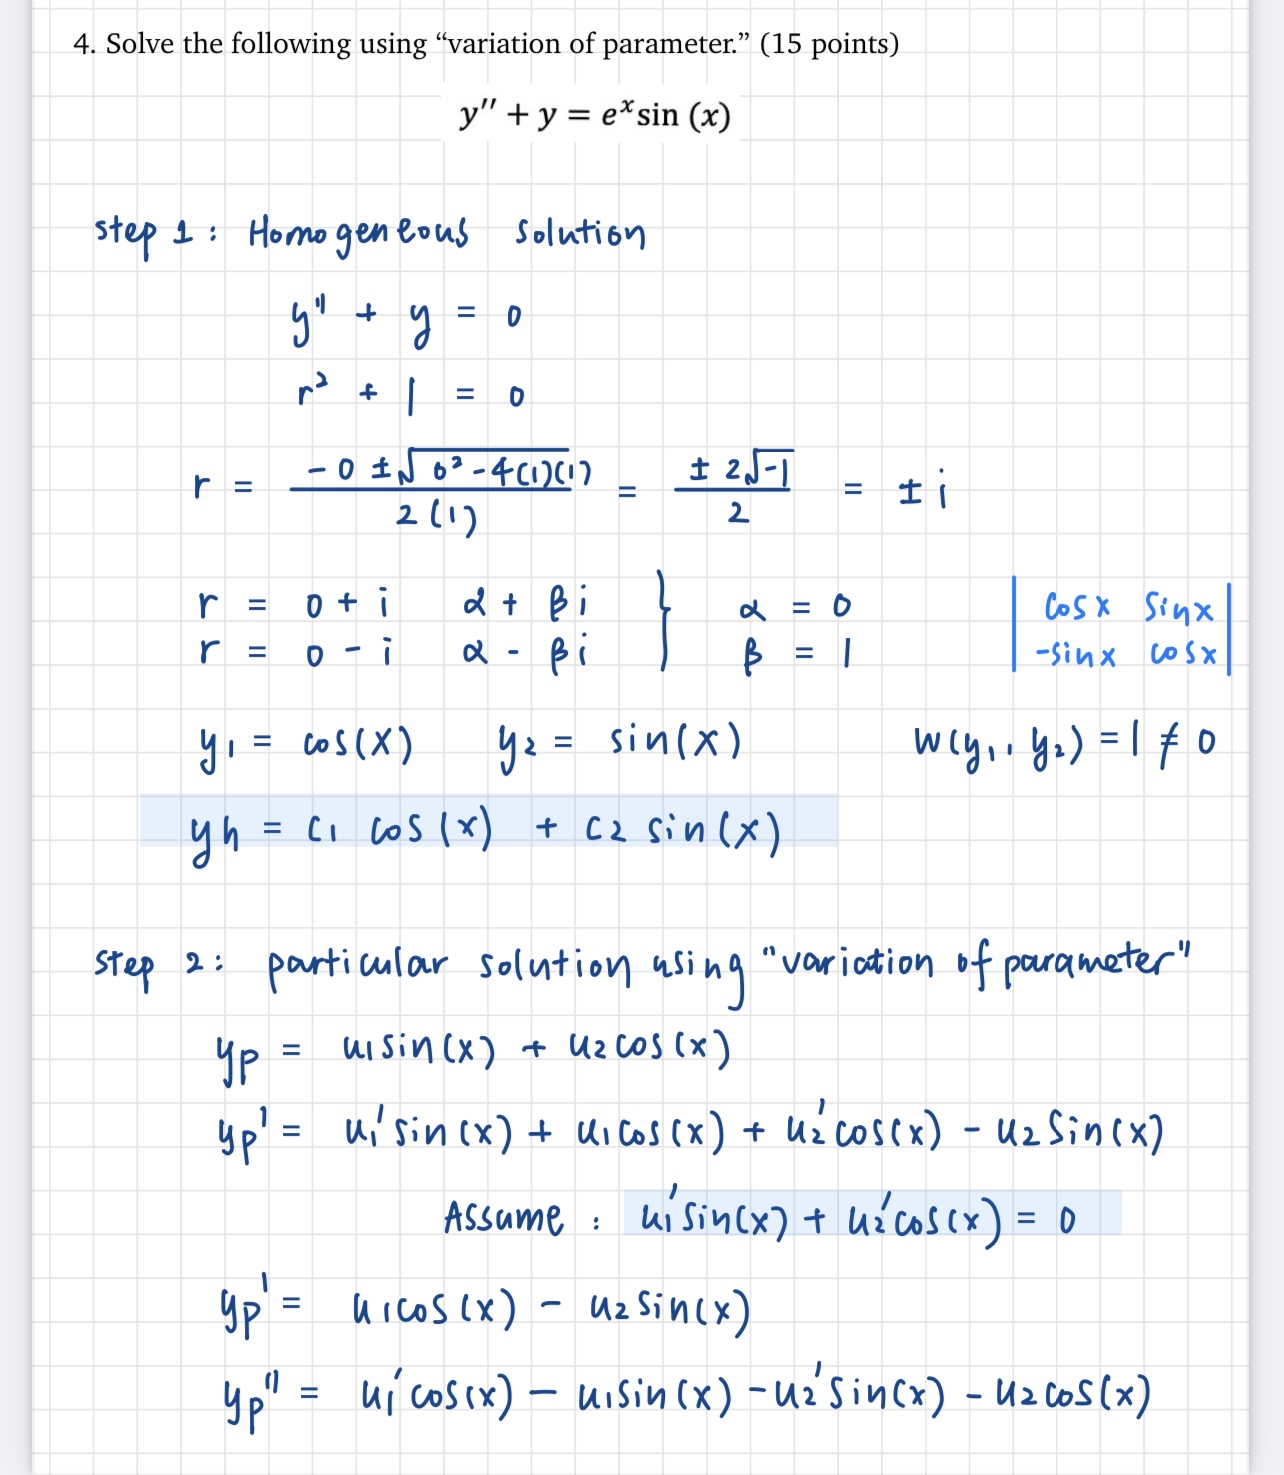 4. Solve the following using “variation of parameter.” (15 points)
y′′ + y = eˣ sin (x)
step 1 : Homogeneous solution
y'' + y = 0
r² + 1 = 0
r = (-0 ± √(0² - 4(1)(1))) / 2(1) = ± 2√-1 / 2 = ± i
r = 0 + i α + βi } α = 0 | cosx sinx |
r = 0 - i α - βi } β = 1 | -sinx cosx |
y₁ = cos(x) y₂ = sin(x) W(y₁, y₂) = 1 ≠ 0
yh = c1 cos(x) + c2 sin(x)
step 2 : particular solution using "variation of parameter"
yp = u1 sin(x) + u2 cos(x)
yp' = u1' sin(x) + u1 cos(x) + u2' cos(x) - u2 sin(x)
Assume : u1' sin(x) + u2' cos(x) = 0
yp' = u1 cos(x) - u2 sin(x)
yp'' = u1' cos(x) - u1 sin(x) - u2' sin(x) - u2 cos(x)